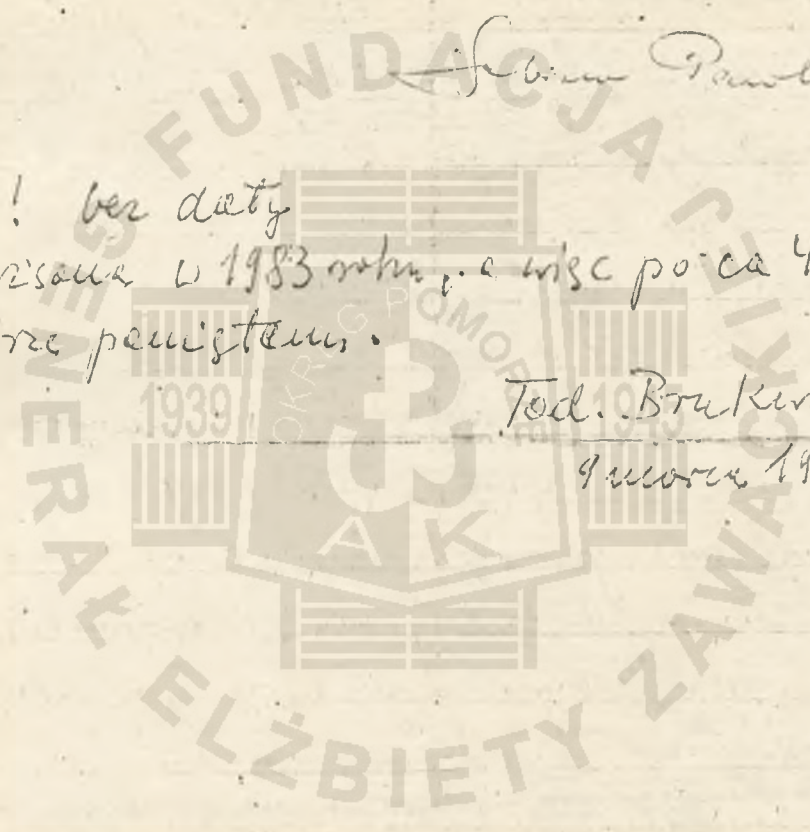 Pawl
! bez daty
pisana w 1983 roku, a więc po ca 4
rze pamiętam.
Tad. Bruker
9 marca 19
FUNDACJA GENERAŁ ELŻBIETY ZAWACKIEJ
OKRĘG POMORZE
1939 1945
AK